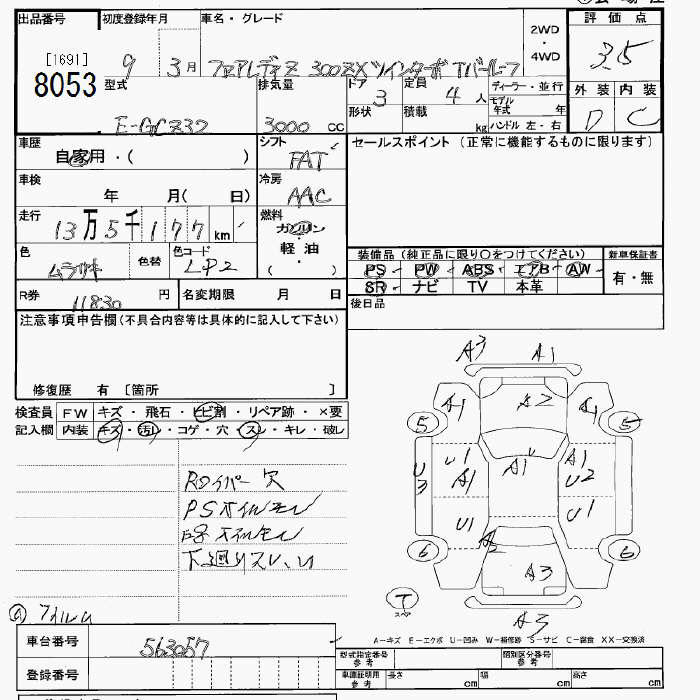 出品番号
[1691]
8053
初度登録年月
9 3月
車名・グレード
フェアレディZ 300ZXツインターボ Tバールーフ
2WD
・
4WD
評価点
3.5
外装 内装
D C
型式
E-GCZ32
排気量
3000 cc
ドア 3
形状
定員 4 人
積載 kg
ディーラー・並行
モデル年式 年
ハンドル 左・右
車歴
自家用・( )
シフト
FAT
セールスポイント (正常に機能するものに限ります)
車検
年 月( 日)
冷房
AAC
走行
13万5千177km
燃料
ガソリン
・
軽油
・
( )
色
ムラサキ
色替
色コード
LP2
装備品 (純正品に限り○をつけてください)
新車保証書
PS PW ABS エアB AW
SR ナビ TV 本革
有・無
R券
11830 円
名変期限 月 日
後日品
注意事項申告欄(不具合内容等は具体的に記入して下さい)
修復歴 有 [箇所 ]
検査員
記入欄
FW キズ・飛石・ヒビ割・リペア跡・×要
内装 キズ・汚れ・コゲ・穴・スレ・キレ・破レ
Rワイパー欠
PSオイルモレ
オイルモレ
下廻りスレ、U
フイルム
A3 A1
A1 A2 A1
5 5
U1 A1 A1
U3 A1 U2
U1 U1
A2
6 A3 6
T
スペア
A3
A-キズ E-エクボ U-凹み W-補修跡 S-サビ C-腐食 XX-交換済
車台番号
563057
登録番号
型式指定番号
参考
類別区分番号
参考
車庫証明用
参考
長さ cm
幅 cm
高さ cm